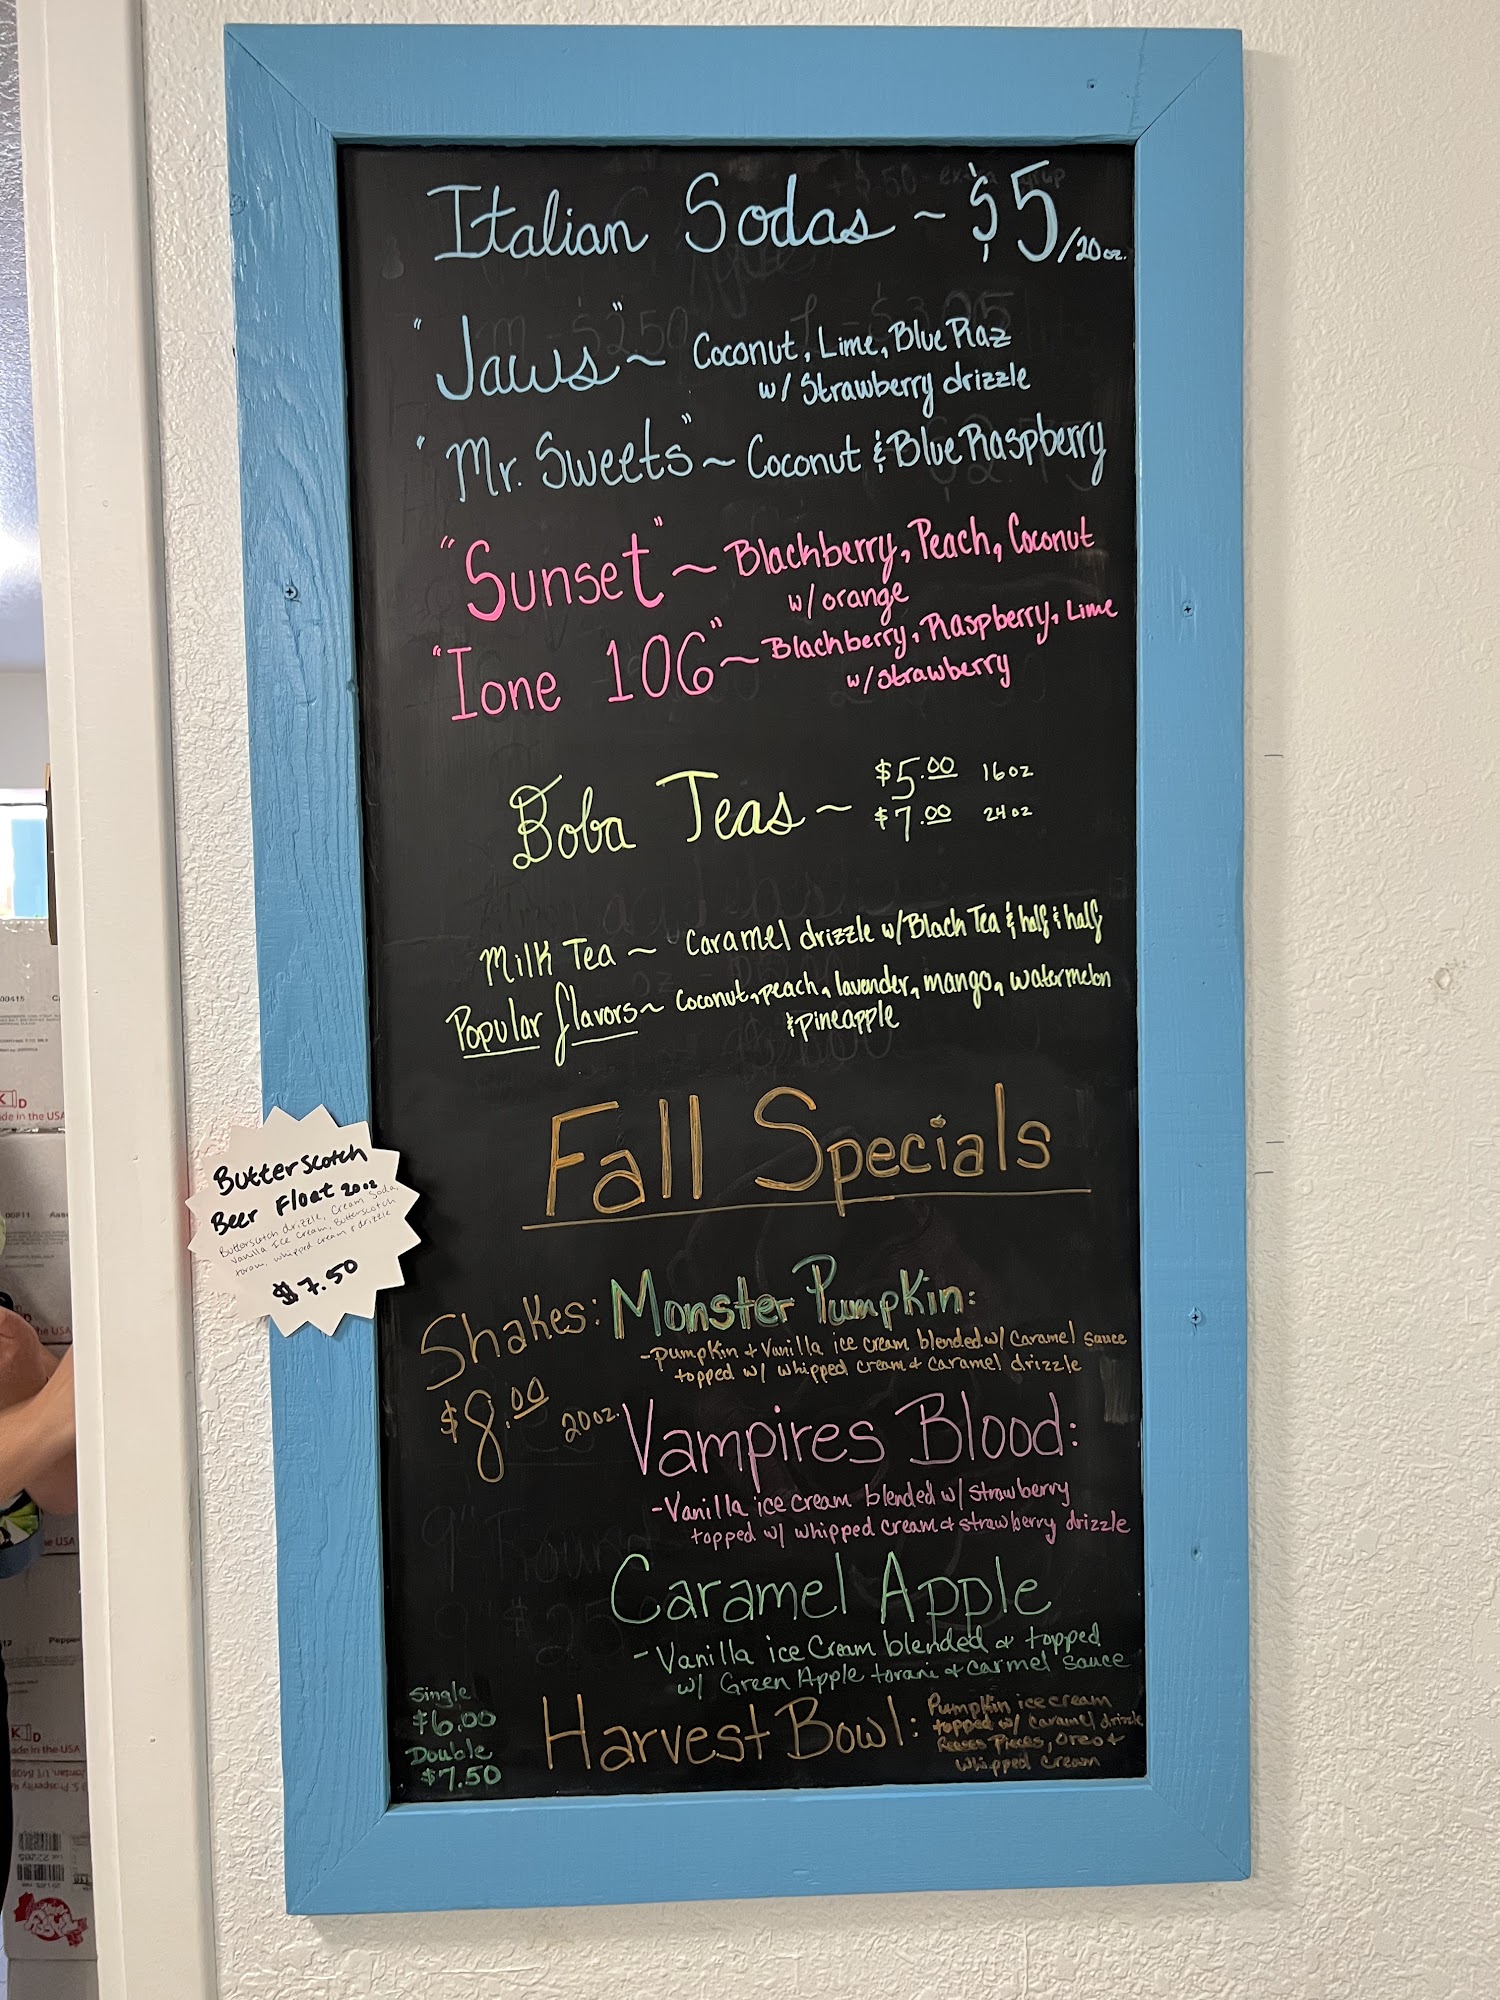 Italian Sodas ~ $5/20oz.
"Jaws" ~ Coconut, Lime, Blue Raz
w/ Strawberry drizzle
"Mr. Sweets" ~ Coconut & Blue Raspberry
"Sunset" ~ Blackberry, Peach, Coconut
w/ orange
"Ione 106" ~ Blackberry, Raspberry, Lime
w/ Strawberry
Boba Teas ~ $5.00 16oz
$7.00 24oz
Milk Tea ~ Caramel drizzle w/ Black Tea & half & half
Popular flavors ~ Coconut, peach, lavender, mango, watermelon
& pineapple
Fall Specials
Butterscotch
Beer Float 20oz
Butterscotch drizzle, Cream Soda,
Vanilla Ice Cream, Butterscotch
torani, whipped cream & drizzle
$7.50
Shakes: Monster Pumpkin:
-Pumpkin & Vanilla ice cream blended w/ Caramel sauce
topped w/ whipped cream & Caramel drizzle
$8.00 20oz.
Vampires Blood:
-Vanilla ice cream blended w/ strawberry
topped w/ whipped cream & strawberry drizzle
Caramel Apple
-Vanilla ice Cream blended & topped
w/ Green Apple torani & carmel sauce
Single
$6.00
Double
$7.50
Harvest Bowl: Pumpkin ice cream
topped w/ Caramel drizzle
Reeses Pieces, Oreo &
whipped cream